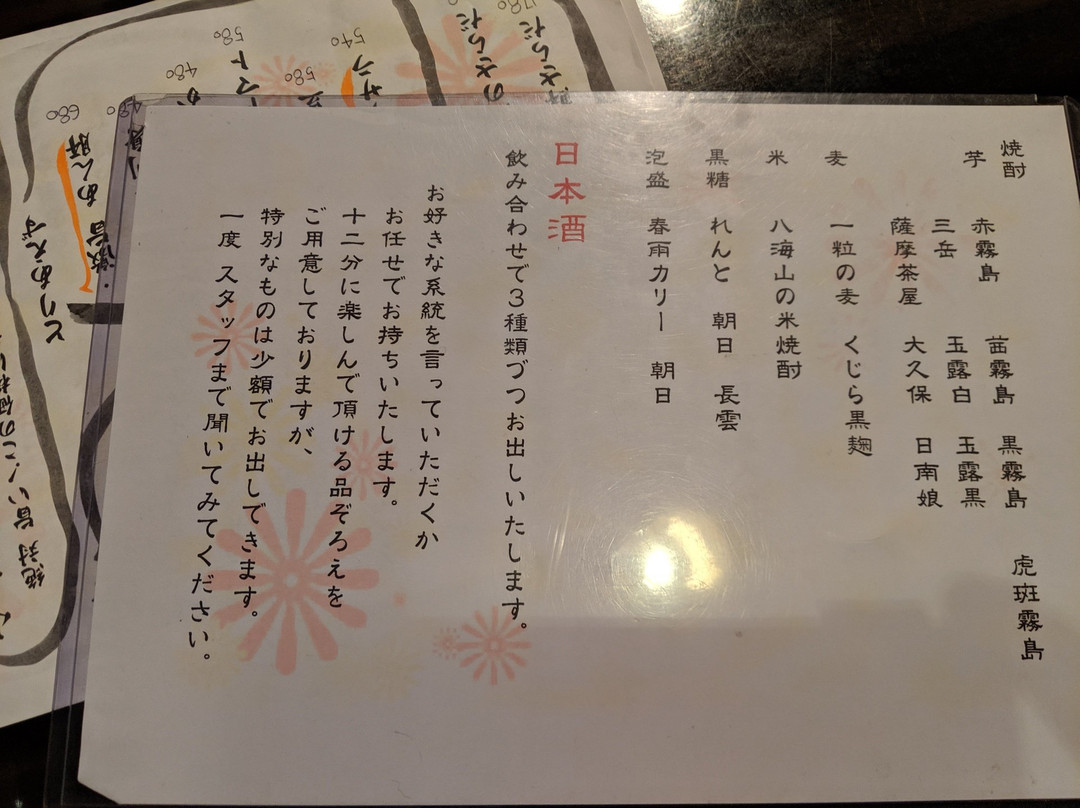 焼酎
芋
赤霧島 茜霧島 黒霧島 虎斑霧島
三岳 玉露白 玉露黒
薩摩茶屋 大久保 日南娘
麦 一粒の麦 くじら黒麹
米 八海山の米焼酎
黒糖 れんと 朝日 長雲
泡盛 春雨カリー 朝日
日本酒
飲み合わせで3種類づつお出しいたします。
お好きな系統を言っていただくか
お任せでお持ちいたします。
十二分に楽しんで頂ける品ぞろえを
ご用意しておりますが、
特別なものは少額でお出しできます。
一度 スタッフまで聞いてみてください。
580
540
480
580
680
とりあえず
激旨 あん肝
絶対旨い!この